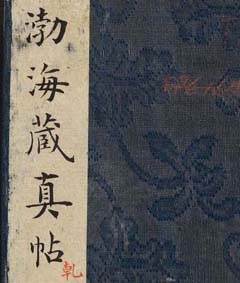 渤海蔵真帖
乾